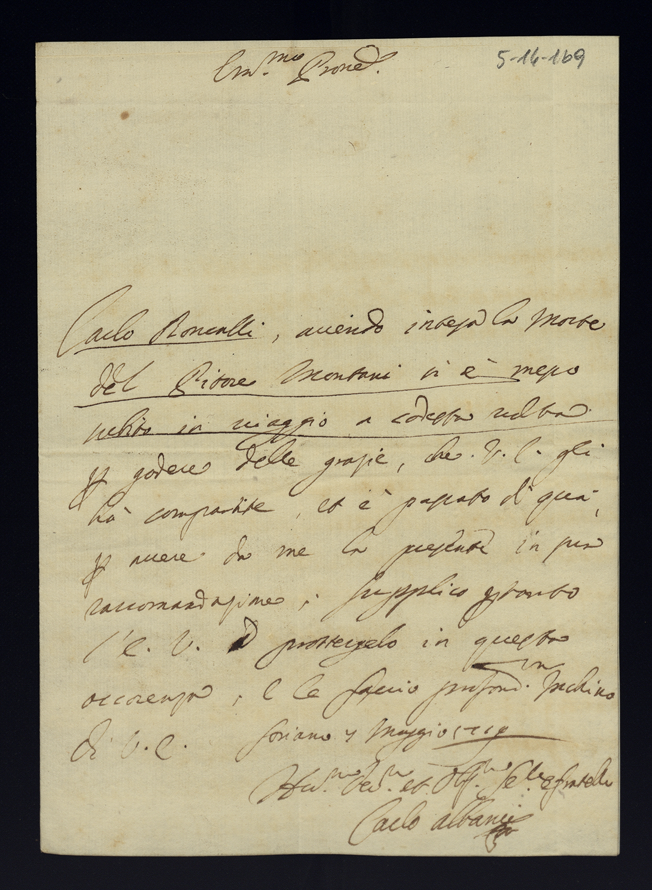 Em.mo Prone.
5-14-169
Carlo Roncalli, avendo intesa la Morte
del Pittore Montani si è messo
subito in viaggio a codesta volta
p godere delle grazie, che V. E. gli
hà compartite, et è passato di quà,
p avere da me la presente in sua
raccomandazione; supplico p tanto
l'E. V. à proteggelo in questa
occorenza, e le faccio profond.m Inchino
di V. E. Soriano 4 Maggio
Um.mo Dev.mo et Obl.mo Se.le e fratello
Carlo Albani